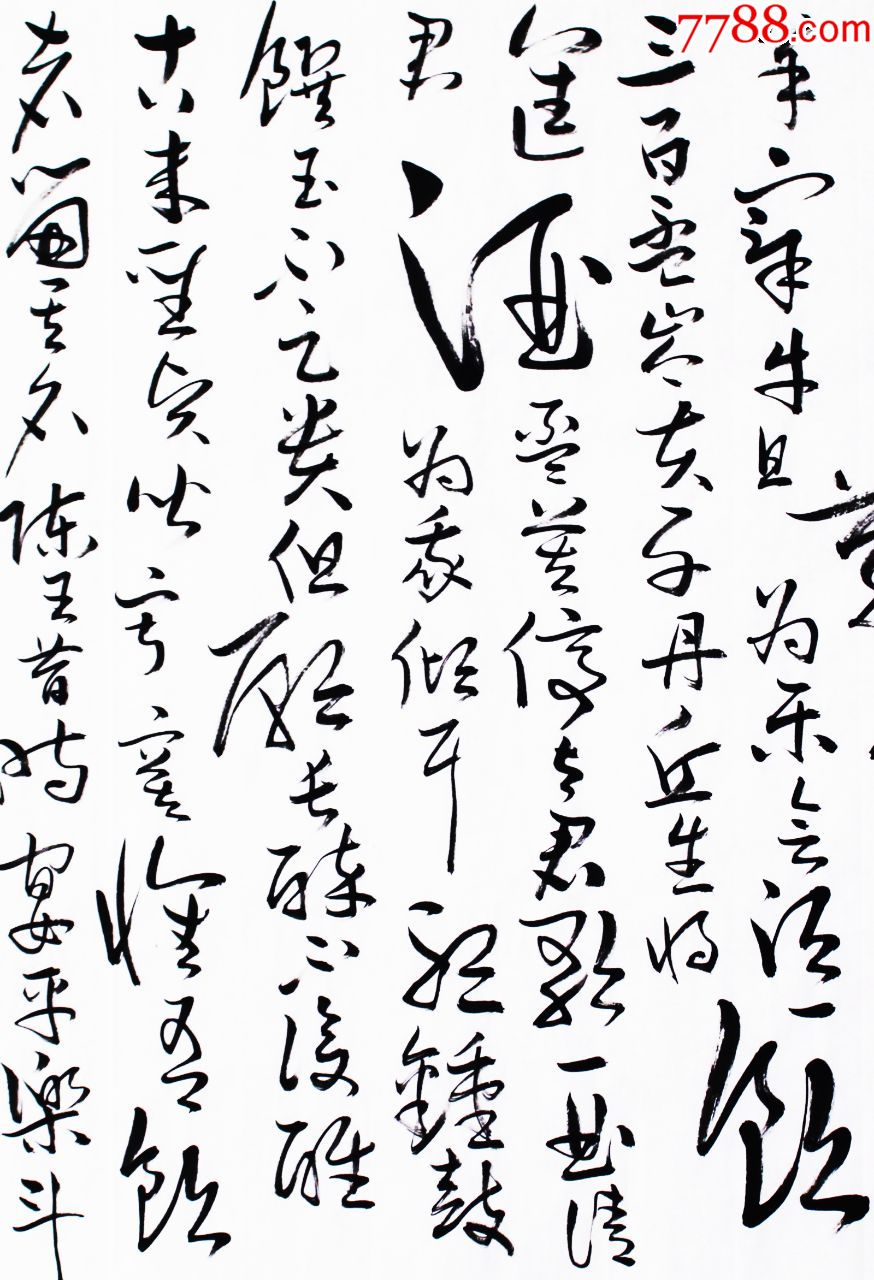 7788.com
羊宰牛且为乐会须一饮
三百盃岑夫子丹丘生将
進酒盃莫停与君歌一曲请
君为我倾耳听鍾鼓
饌玉不足贵但愿长醉不復醒
古来圣贤皆寂寞惟有飲
者留其名陈王昔时宴平樂斗